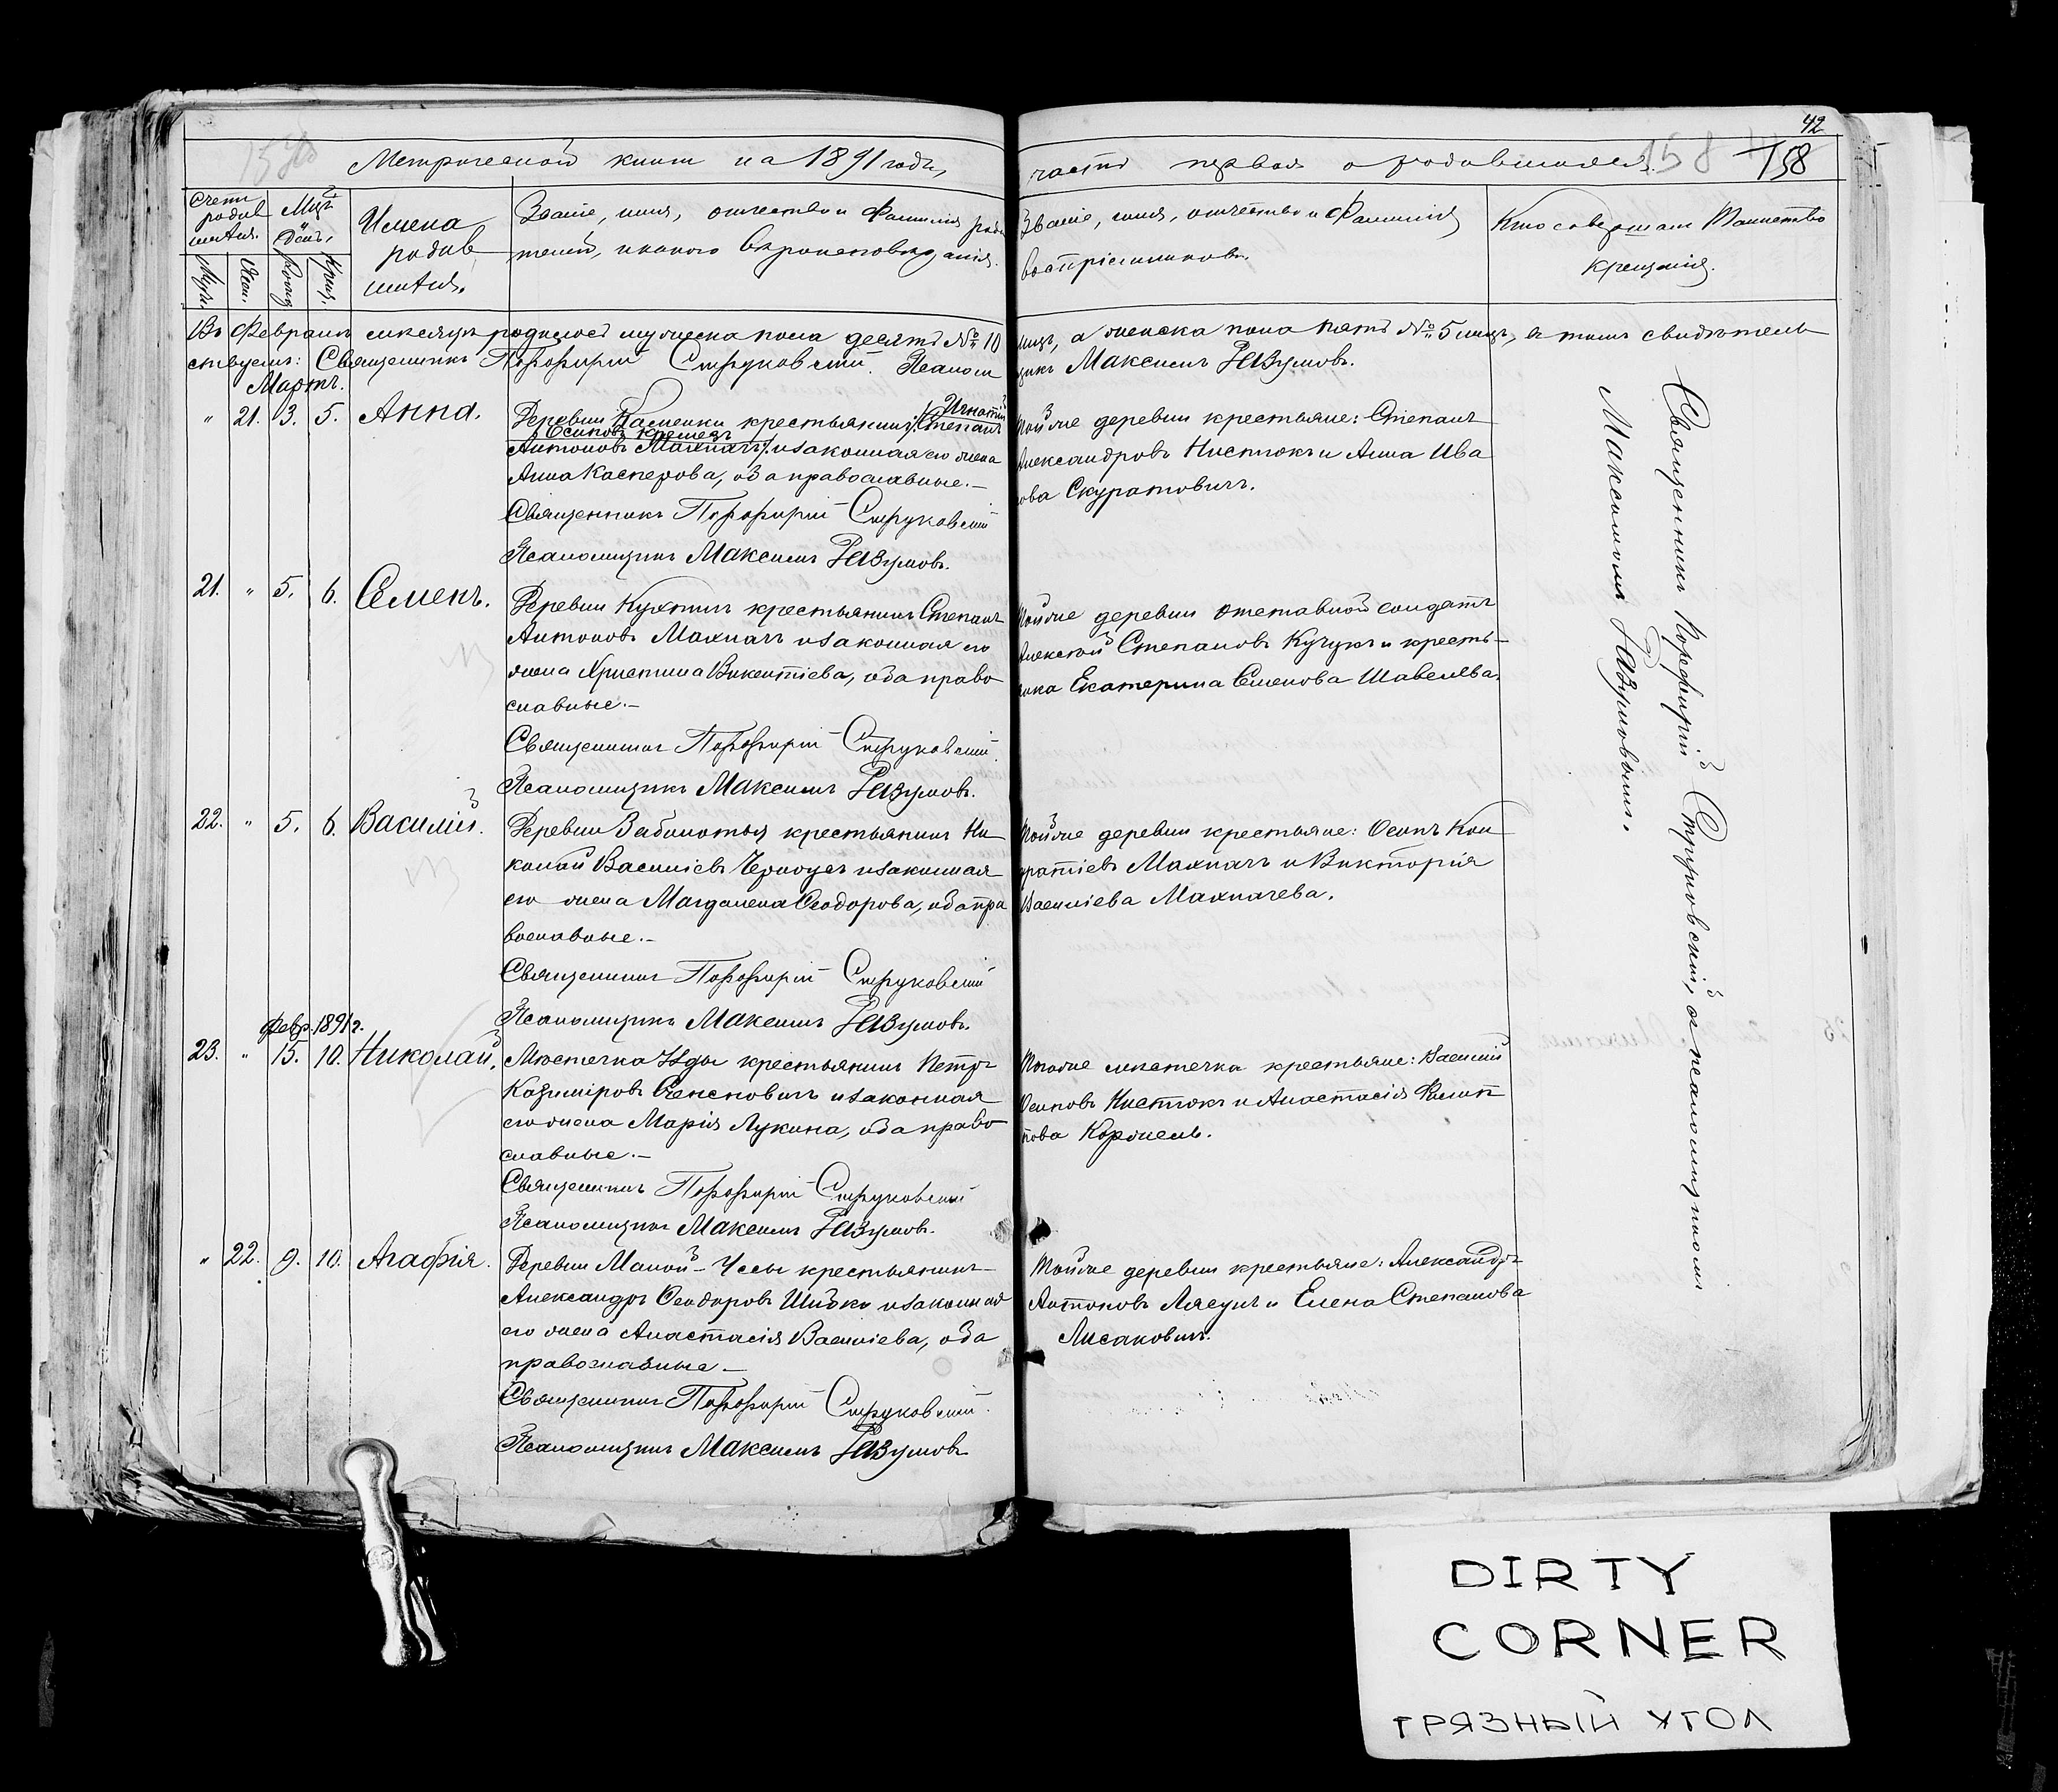 42
158
Метрической книги на 1891 годъ,
части первая о родившихся.
158
Счетъ родив шихся.
Мцъ и день.
Имена родив шихся.
Званіе, имя, отчество и Фамилія роди
телей, и какого вѣроисповѣданія.
Званіе, имя, отчество и Фамилія
воспріемниковъ.
Кто совершалъ Таинство
крещенія.
Муж.
Жен.
Рожд.
Крещ.
Въ Февралѣ мѣсяцѣ родилось мужеска пола десять № 10 лицъ, а женска пола пять № 5 лицъ, въ томъ свидѣтель
ствуемъ: Священникъ Порфирій Струковскій. Псалом щикъ Максимъ Разумовъ.
Мартъ.
" 21. 3. 5. Анна.
Деревни крестьянинъ Степанъ
Игнатій
Осиповъ
Антоновъ Махначъ и законная его жена
Анна Касперова, оба православные.—
Священникъ Порфирій Струковскій
Псаломщикъ Максимъ Разумовъ.
Той же деревни крестьяне: Степанъ
Александровъ Нистюкъ и Анна Ива
нова Скуратовичъ.
21. " 5. 6. Семенъ.
Деревни Кухтичъ крестьянинъ Степанъ
Антоновъ Махначъ и законная его
жена Христина Викентіева, оба право
славные.—
Священникъ Порфирій Струковскій.
Псаломщикъ Максимъ Разумовъ.
Той же деревни отставной солдатъ
Алексѣй Степановъ Кучукъ и кресть-
янка Екатерина Семенова Шавелева.
22. " 5. 6. Василій.
Деревни Заболотья крестьянинъ Ни-
колай Василіевъ Черноусъ и законная
его жена Магдалена Ѳеодорова, оба пра
вославные.—
Священникъ Порфирій Струковскій
Псаломщикъ Максимъ Разумовъ.
Той же деревни крестьяне: Осипъ Кон
дратіевъ Махначъ и Викторія
Василіева Махначева.
Февр. 1891 г.
23. " 15. 10. Николай.
Мѣстечка Узды крестьянинъ Петръ
Казиміровъ Сенсновичъ и законная
его жена Марія Лукина, оба право
славные.—
Священникъ Порфирій Струковскій
Псаломщикъ Максимъ Разумовъ.
Того же мѣстечка крестьяне: Василій
Осиповъ Нистюкъ и Анастасія Филип
пова Корженъ.
" 22. 9. 10. Агафія.
Деревни Малой-Уссы крестьянинъ
Александръ Ѳеодоровъ Шибко и законная
его жена Анастасія Василіева, оба
православные—
Священникъ Порфирій Струковскій.
Псаломщикъ Максимъ Разумовъ
Той же деревни крестьяне: Александръ
Антоновъ Лясунъ и Елена Степанова
Лисаковичъ.
Священникъ Порфирій Струковскій, съ псаломщикомъ
Максимомъ Разумовымъ.
DIRTY
CORNER
ГРЯЗНЫЙ УГОЛ